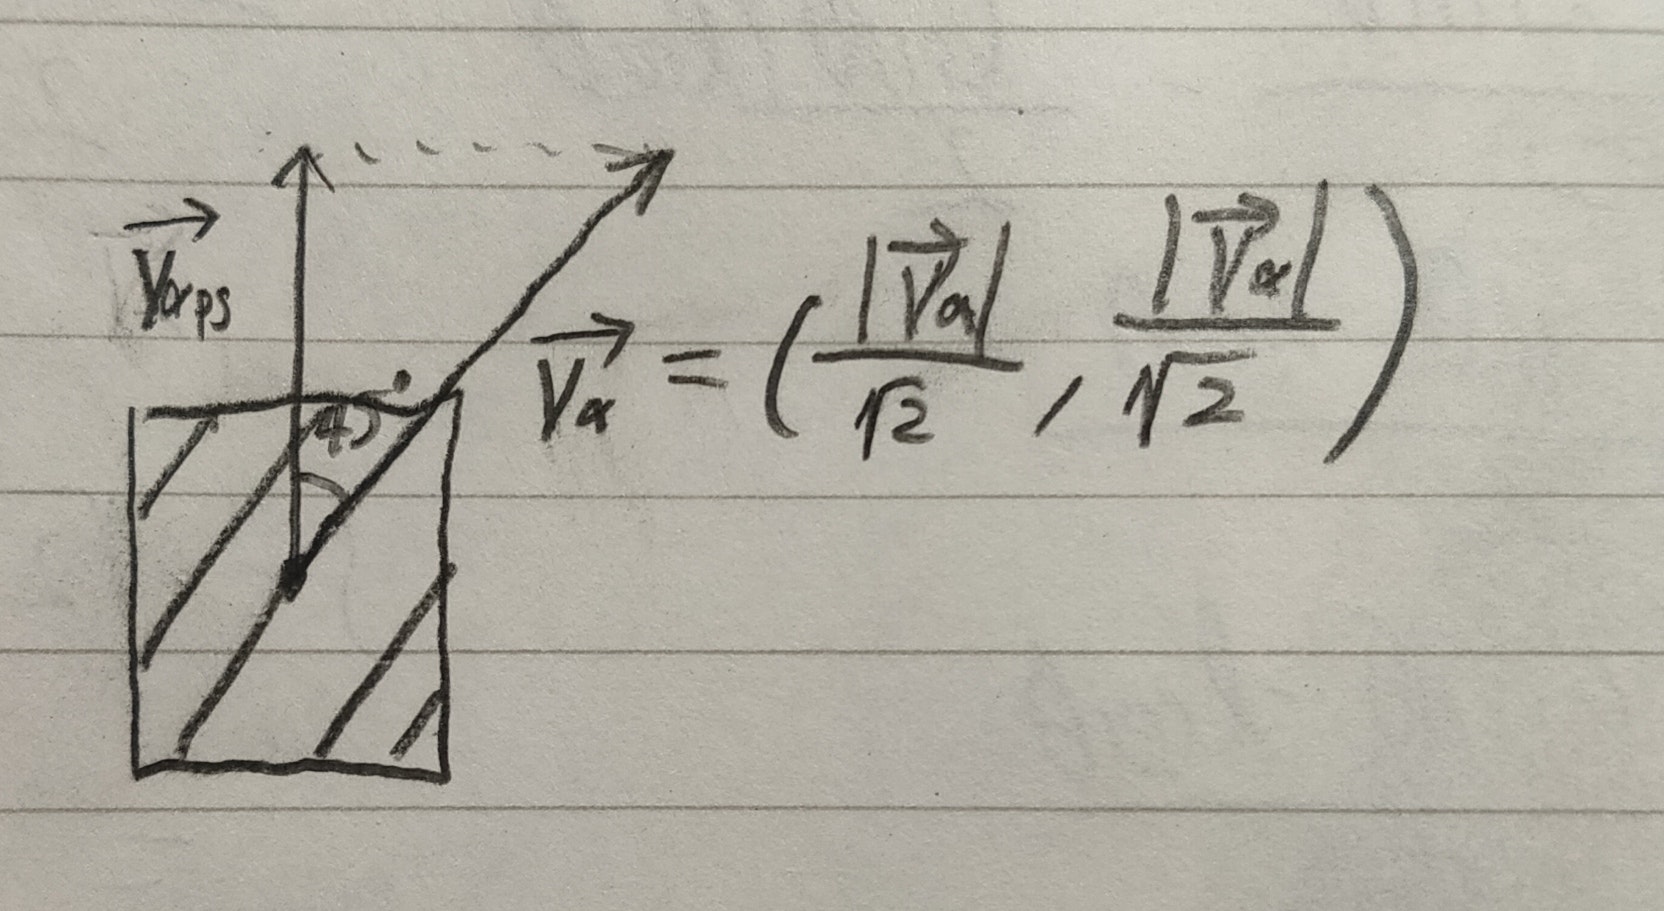 V⃗αps
45°
V⃗α = ( |V⃗α| / √2 , |V⃗α| / √2 )